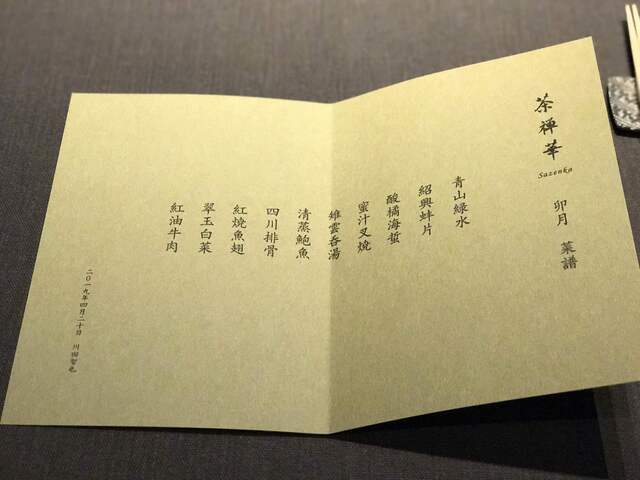 茶禅華
Sazenka
卯月 菜譜
青山緑水
紹興蚌片
酸橘海蜇
蜜汁叉焼
雉雲呑湯
清蒸鮑魚
四川排骨
紅焼魚翅
翠玉白菜
紅油牛肉
二〇一九年四月二十日 川田智也